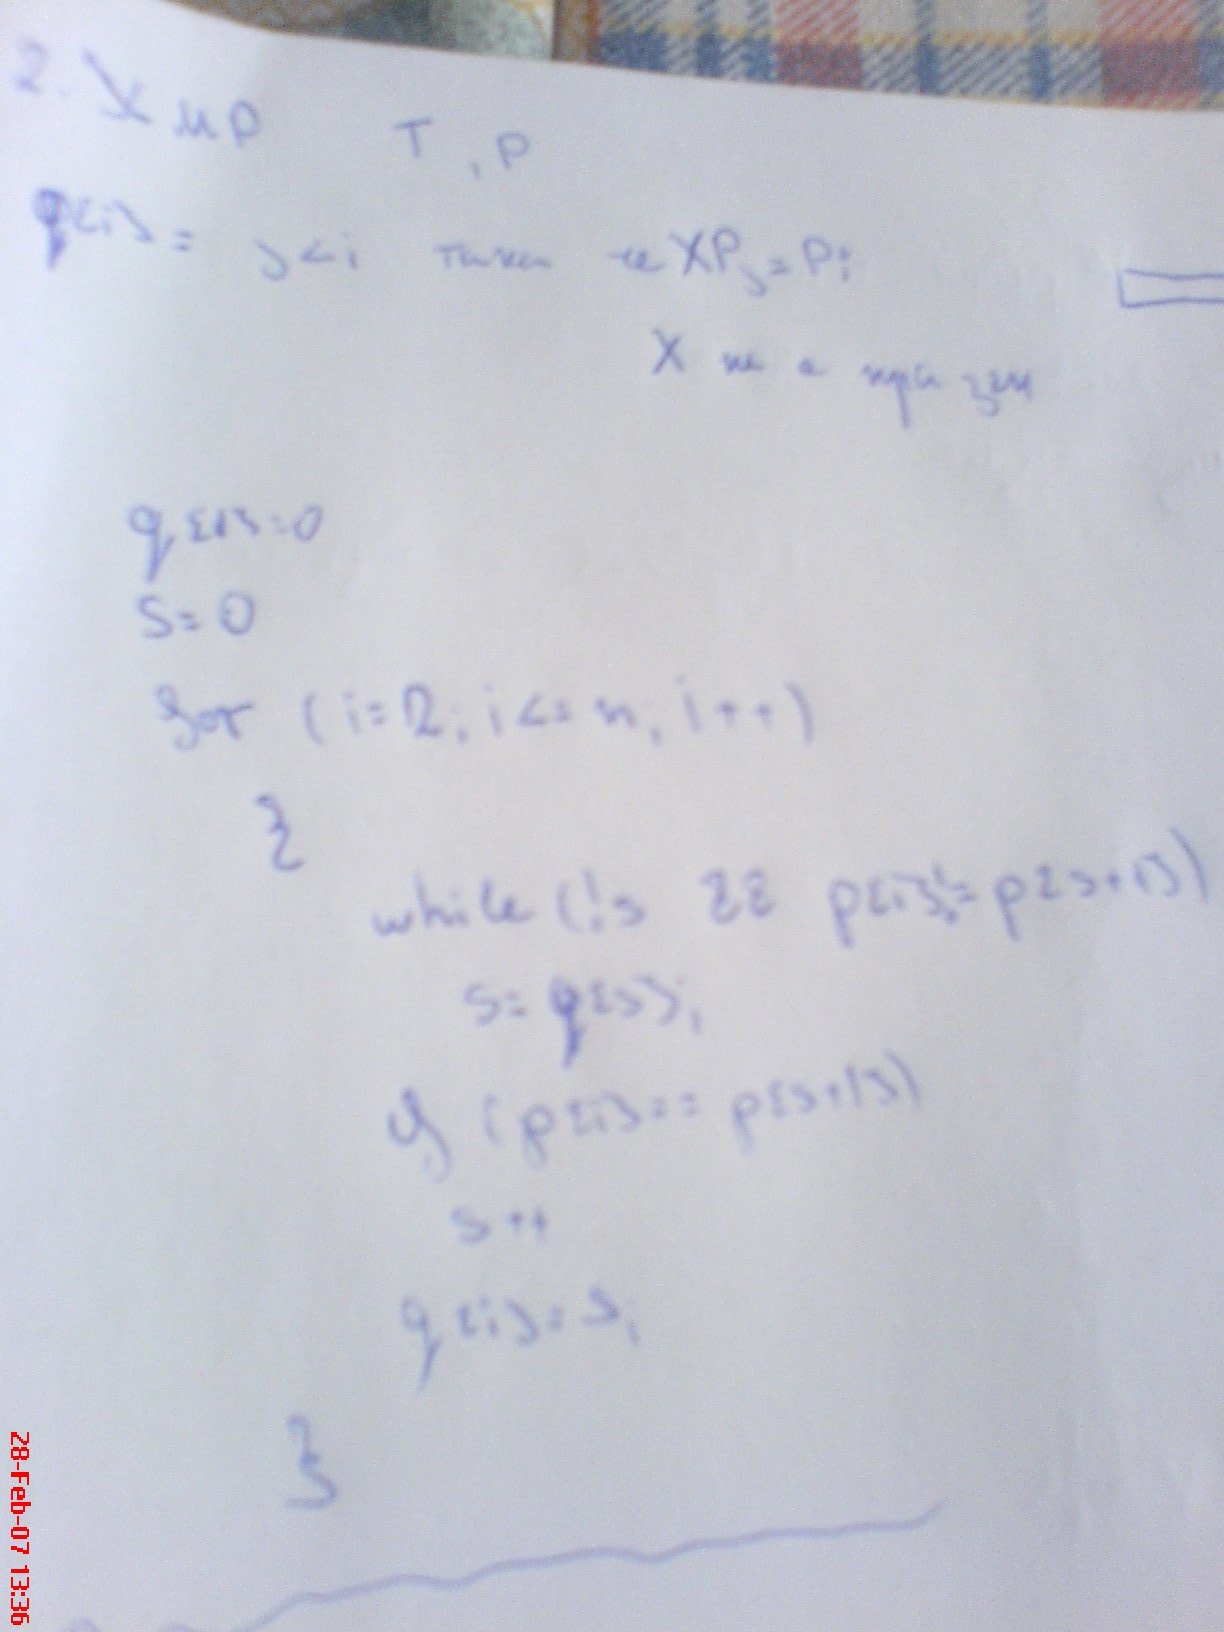 2. КМР T, P
q[i] = j<i такъв че XPj = Pi
X не е празен
q[1]=0
s=0
for (i=2; i<=n; i++)
{
while (!s && p[i]!=p[s+1])
s=q[s];
if (p[i]==p[s+1])
s++
q[i]=s;
}
28-Feb-07 13:36